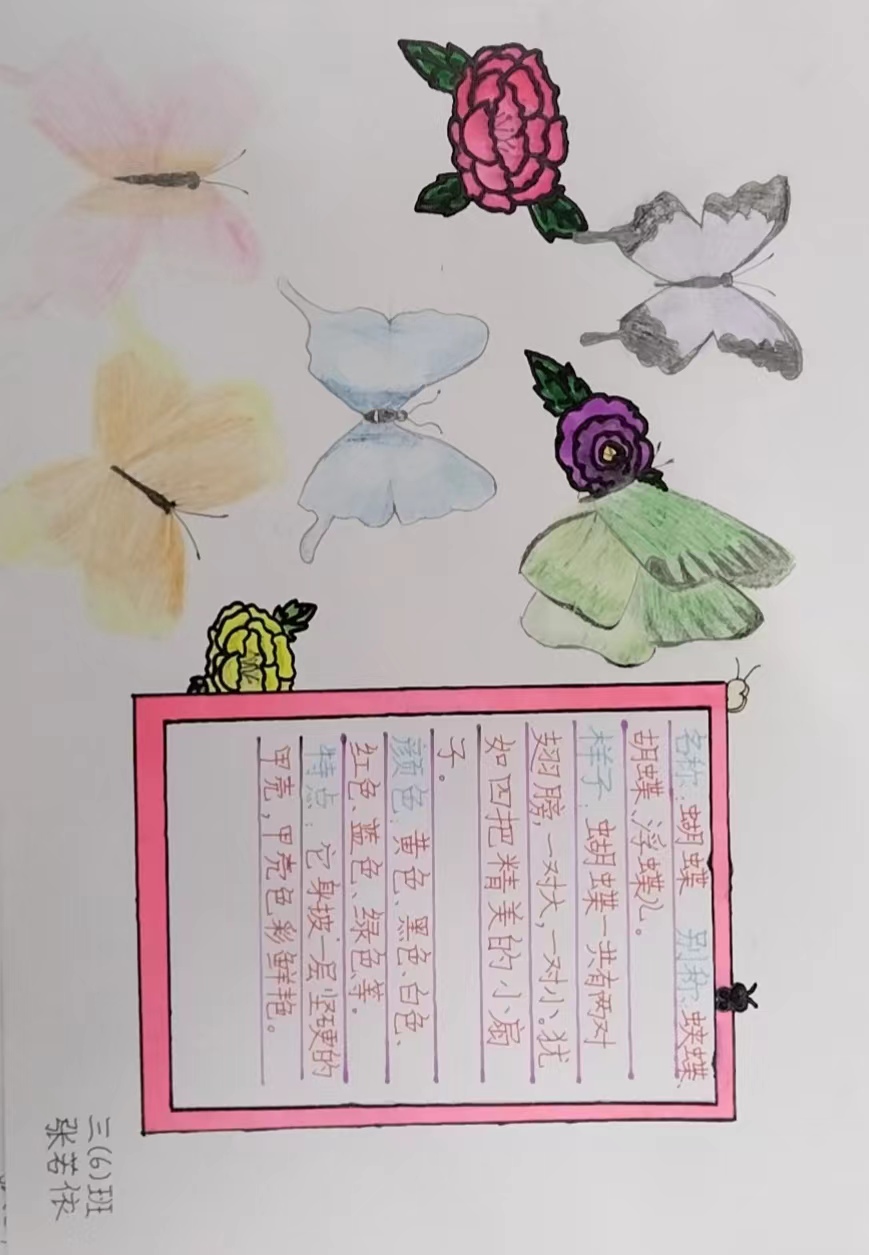 名称:蝴蝶 别称:蝶蝶、
胡蝶、浮蝶儿。
样子:蝴蝶一共有两对
翅膀,一对大,一对小。犹
如四把精美的小扇
子。
颜色:黄色、黑色、白色、
红色、蓝色、绿色等。
特点:它身披一层坚硬的
甲壳,甲壳色彩鲜艳。
三(6)班
张若依